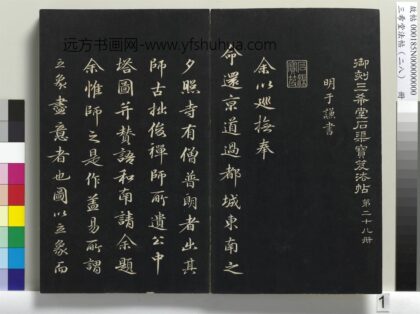 远方书画网-www.yfshuhua.com
御刻三希堂石渠寶笈法帖 第二十八冊
明于謙書
余以巡撫奉
命還京道過都城東南之
夕照寺有僧普明者出其
師古拙俊禪師所遺公中
塔圖并贊語和南請余題
余惟師之是作蓋易所謂
立象盡意者也圖以立象而
故帖 000185N000000000
三希堂法帖(二八) 冊
1